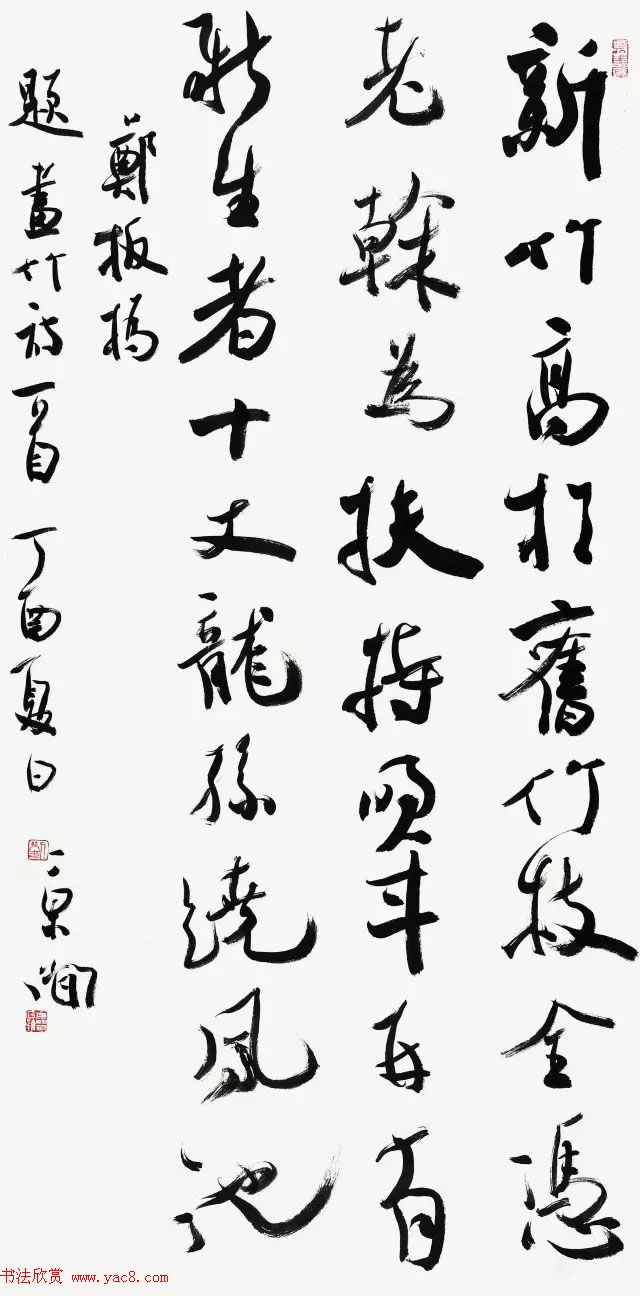 新竹高於舊竹枝全憑
老榦為扶持明年再有
新生者十丈龍孫繞鳳池
鄭板橋
題畫竹詩一首 丁酉夏日
书法欣赏 www.yac8.com